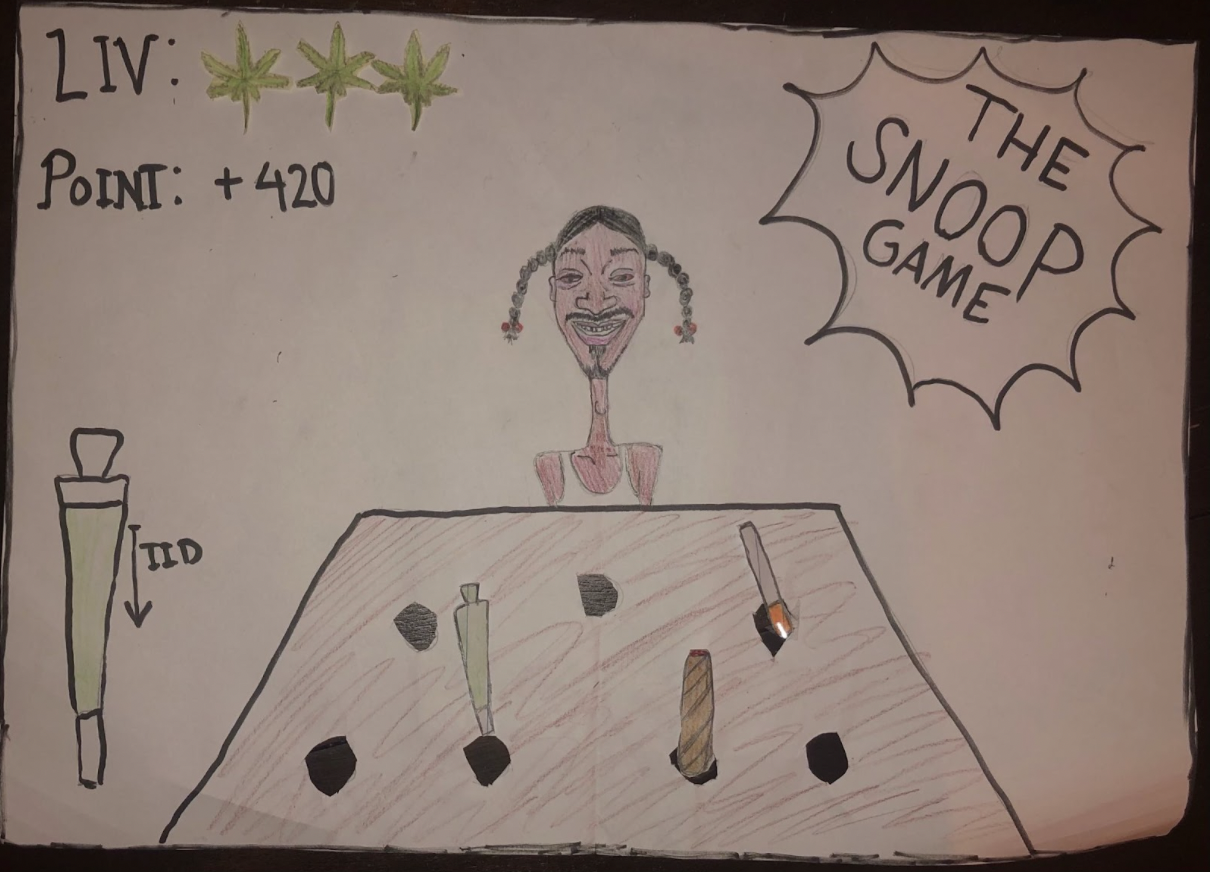 LIV:
POINT: +420
THE
SNOOP
GAME
TID